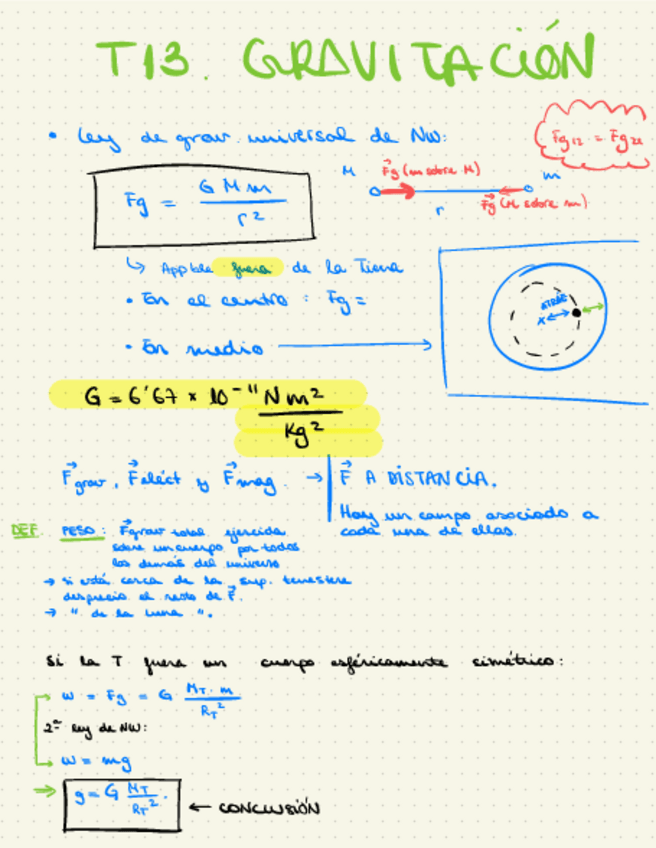 T13. GRAVITACIÓN
• Ley de grav. universal de NW:
Fg12 = Fg21
Fg = G M m / r²
M
F⃗g (m sobre M)
m
r
F⃗g (M sobre m)
↳ Appble fuera de la Tierra
• En el centro : Fg =
• En medio →
ATRAE
x
G = 6'67 × 10⁻¹¹ N m² / Kg²
F⃗grav, F⃗eléct y F⃗mag. → F⃗ A DISTANCIA.
Hay un campo asociado a
cada una de ellas.
DEF. PESO: F⃗grav total ejercida
sobre un cuerpo por todos
los demás del universo
→ si está cerca de la sup. terrestre
desprecio el resto de F⃗.
→ " de la luna ".
Si la T fuera un cuerpo esféricamente simétrico:
w = Fg = G MT · m / RT²
2ª ley de NW:
w = mg
⇒ g = G MT / RT² . ← CONCLUSIÓN